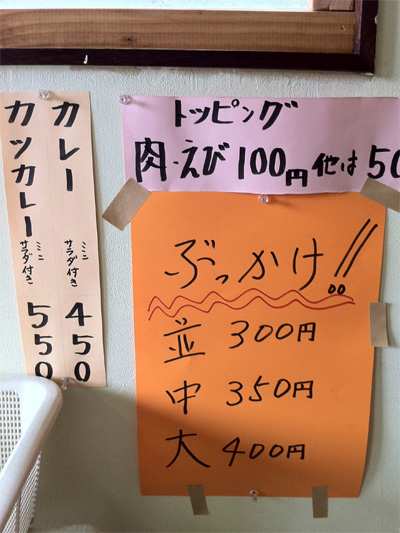 カレー ミニサラダ付き 450
カツカレー ミニサラダ付き 550
トッピング
肉・えび100円他は50
ぶっかけ!!
並 300円
中 350円
大 400円